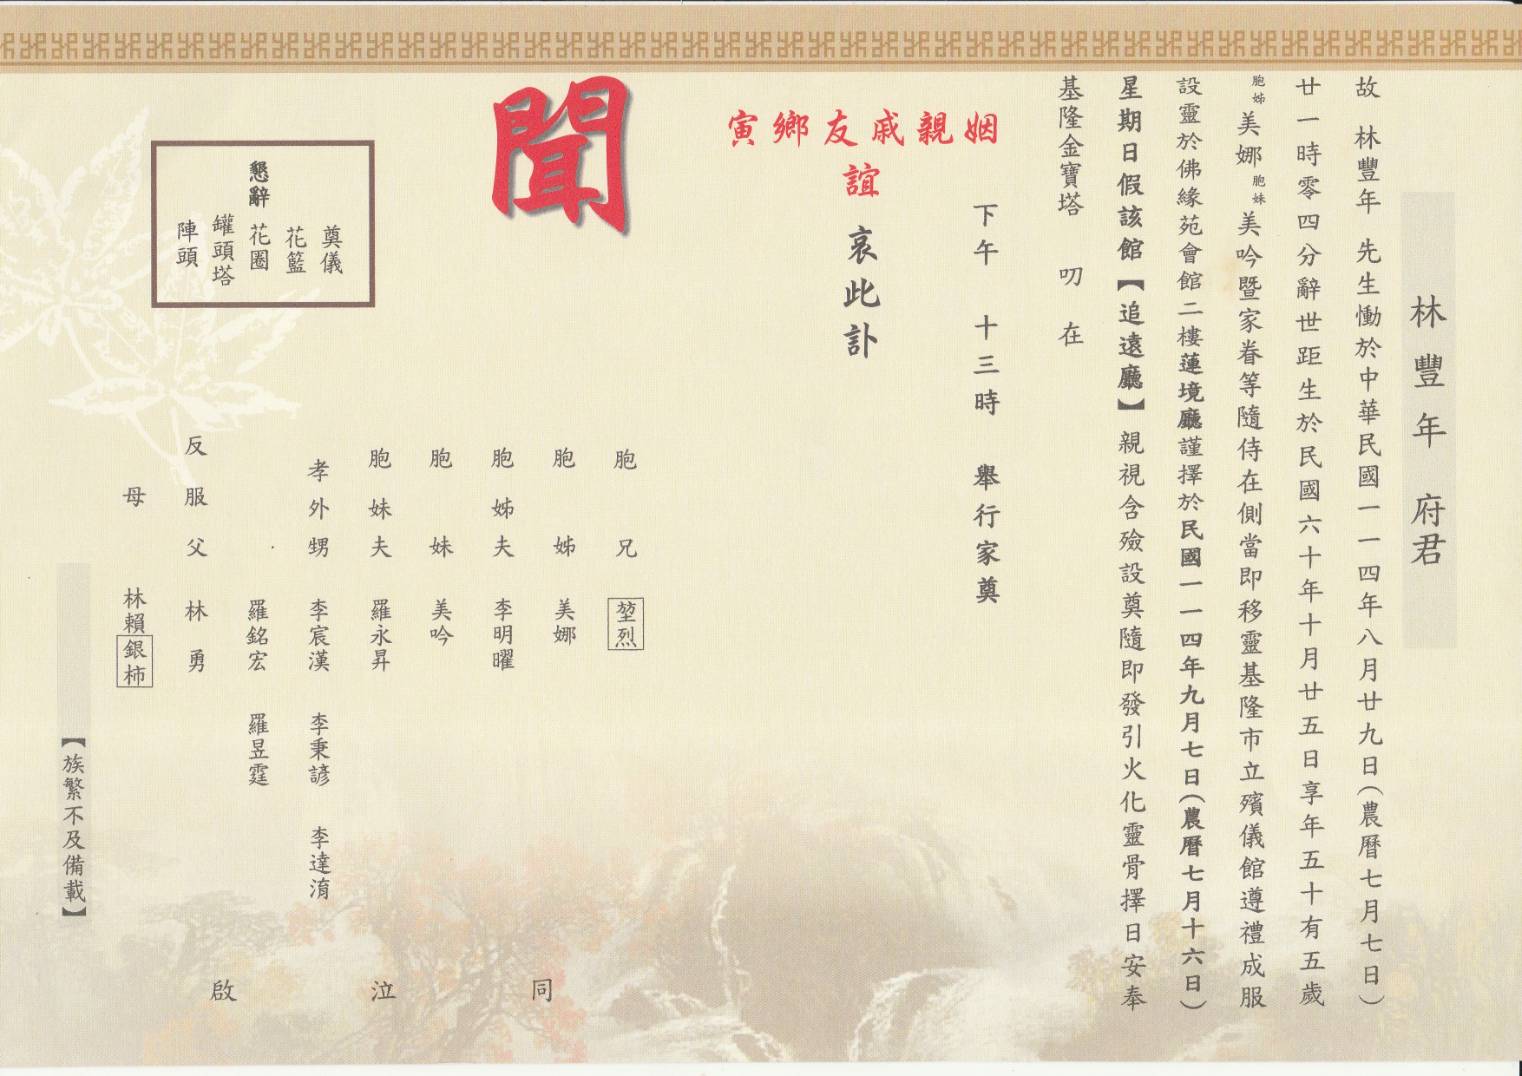 林豐年 府君
故 林豐年 先生慟於中華民國一一四年八月廿九日(農曆七月七日)
廿一時零四分辭世距生於民國六十年十月廿五日享年五十有五歲
胞姊美娜胞妹美吟暨家眷等隨侍在側當即移靈基隆市立殯儀館遵禮成服
設靈於佛緣苑會館二樓蓮境廳謹擇於民國一一四年九月七日(農曆七月十六日)
星期日假該館【追遠廳】親視含殮設奠隨即發引火化靈骨擇日安奉
基隆金寶塔 叨在
下午 十三時 舉行家奠
姻親戚友鄉寅
誼 哀此訃
聞
胞兄 堃烈
胞姊 美娜
胞姊夫 李明曜
胞妹 美吟
胞妹夫 羅永昇
孝外甥 李宸漢 李秉諺 李達淯
羅銘宏 羅昱霆
反服父 林勇
母 林賴銀柿
同 泣 啟
【族繁不及備載】
奠儀
花籃
懇辭 花圈
罐頭塔
陣頭